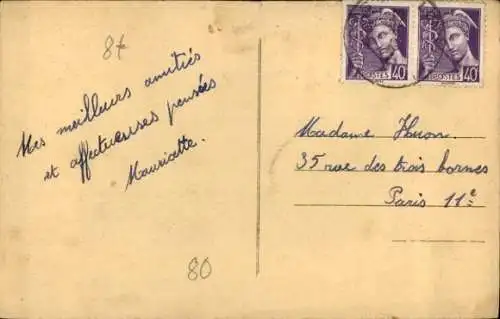 8€
Mes meilleurs amitiés
et affectueuses pensées
Mauricette.
80
POSTES 40
POSTES 40
Madame Huron.
35 rue des trois bornes
Paris 11e